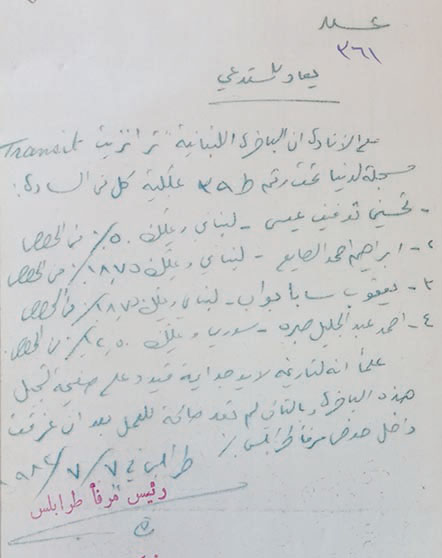 عدد
٣٦١
يعاد للمستدعي
مع الافادة ان الباخرة اللبنانية ترانزيت Transit
مسجلة لدينا تحت رقم ط ٣٩ بملكية كل من السادة:
١- تحسين توفيق عيسى - لبناني ويملك ٥٠٪ من الحصص
٢- ابراهيم احمد الصايغ - لبناني ويملك ١٨,٧٥٪ من الحصص
٣- يعقوب سابا بواب - لبناني ويملك ١٨,٧٥٪ من الحصص
٤- احمد عبد الجليل صبره - سوري ويملك ١٢,٥٠٪ من الحصص
علماً انه لتاريخه لا يوجد اية قيود على صفيحة التسجيل
هذه الباخرة وبالتالي لم تعد صالحة للعمل بعد ان غرقت
داخل حوض مرفأ طرابلس./
طرابلس في ٧/٧/
رئيس مرفأ طرابلس